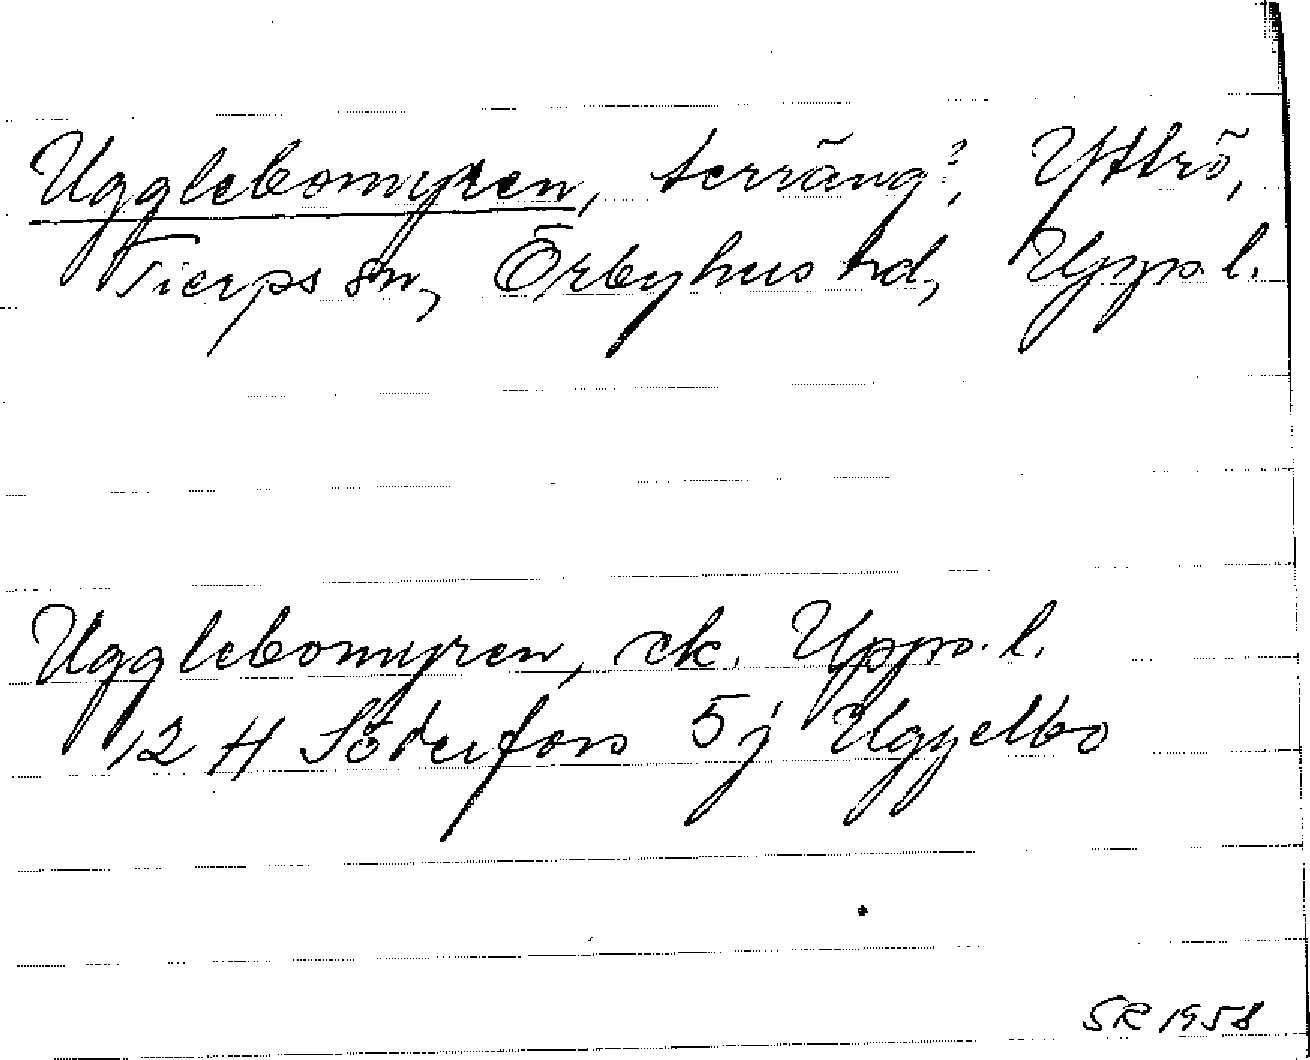 Ugglebomyren, terräng?, Yttrö,
Tierps sn, Örbyhus hd, Upps. l.
Ugglebomyren, ek. Upps. l.
12 H Söderfors 5 j Uggelbo
SR 1958